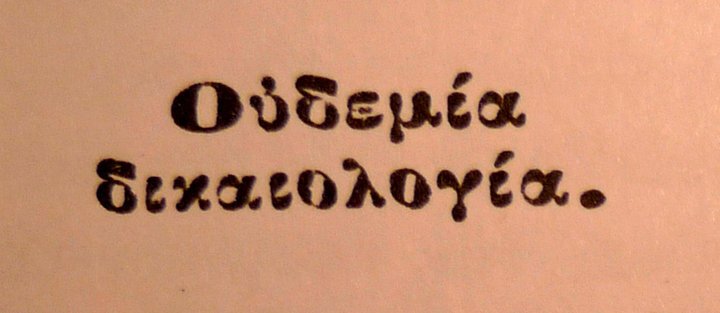 Οὐδεμία
δικαιολογία.